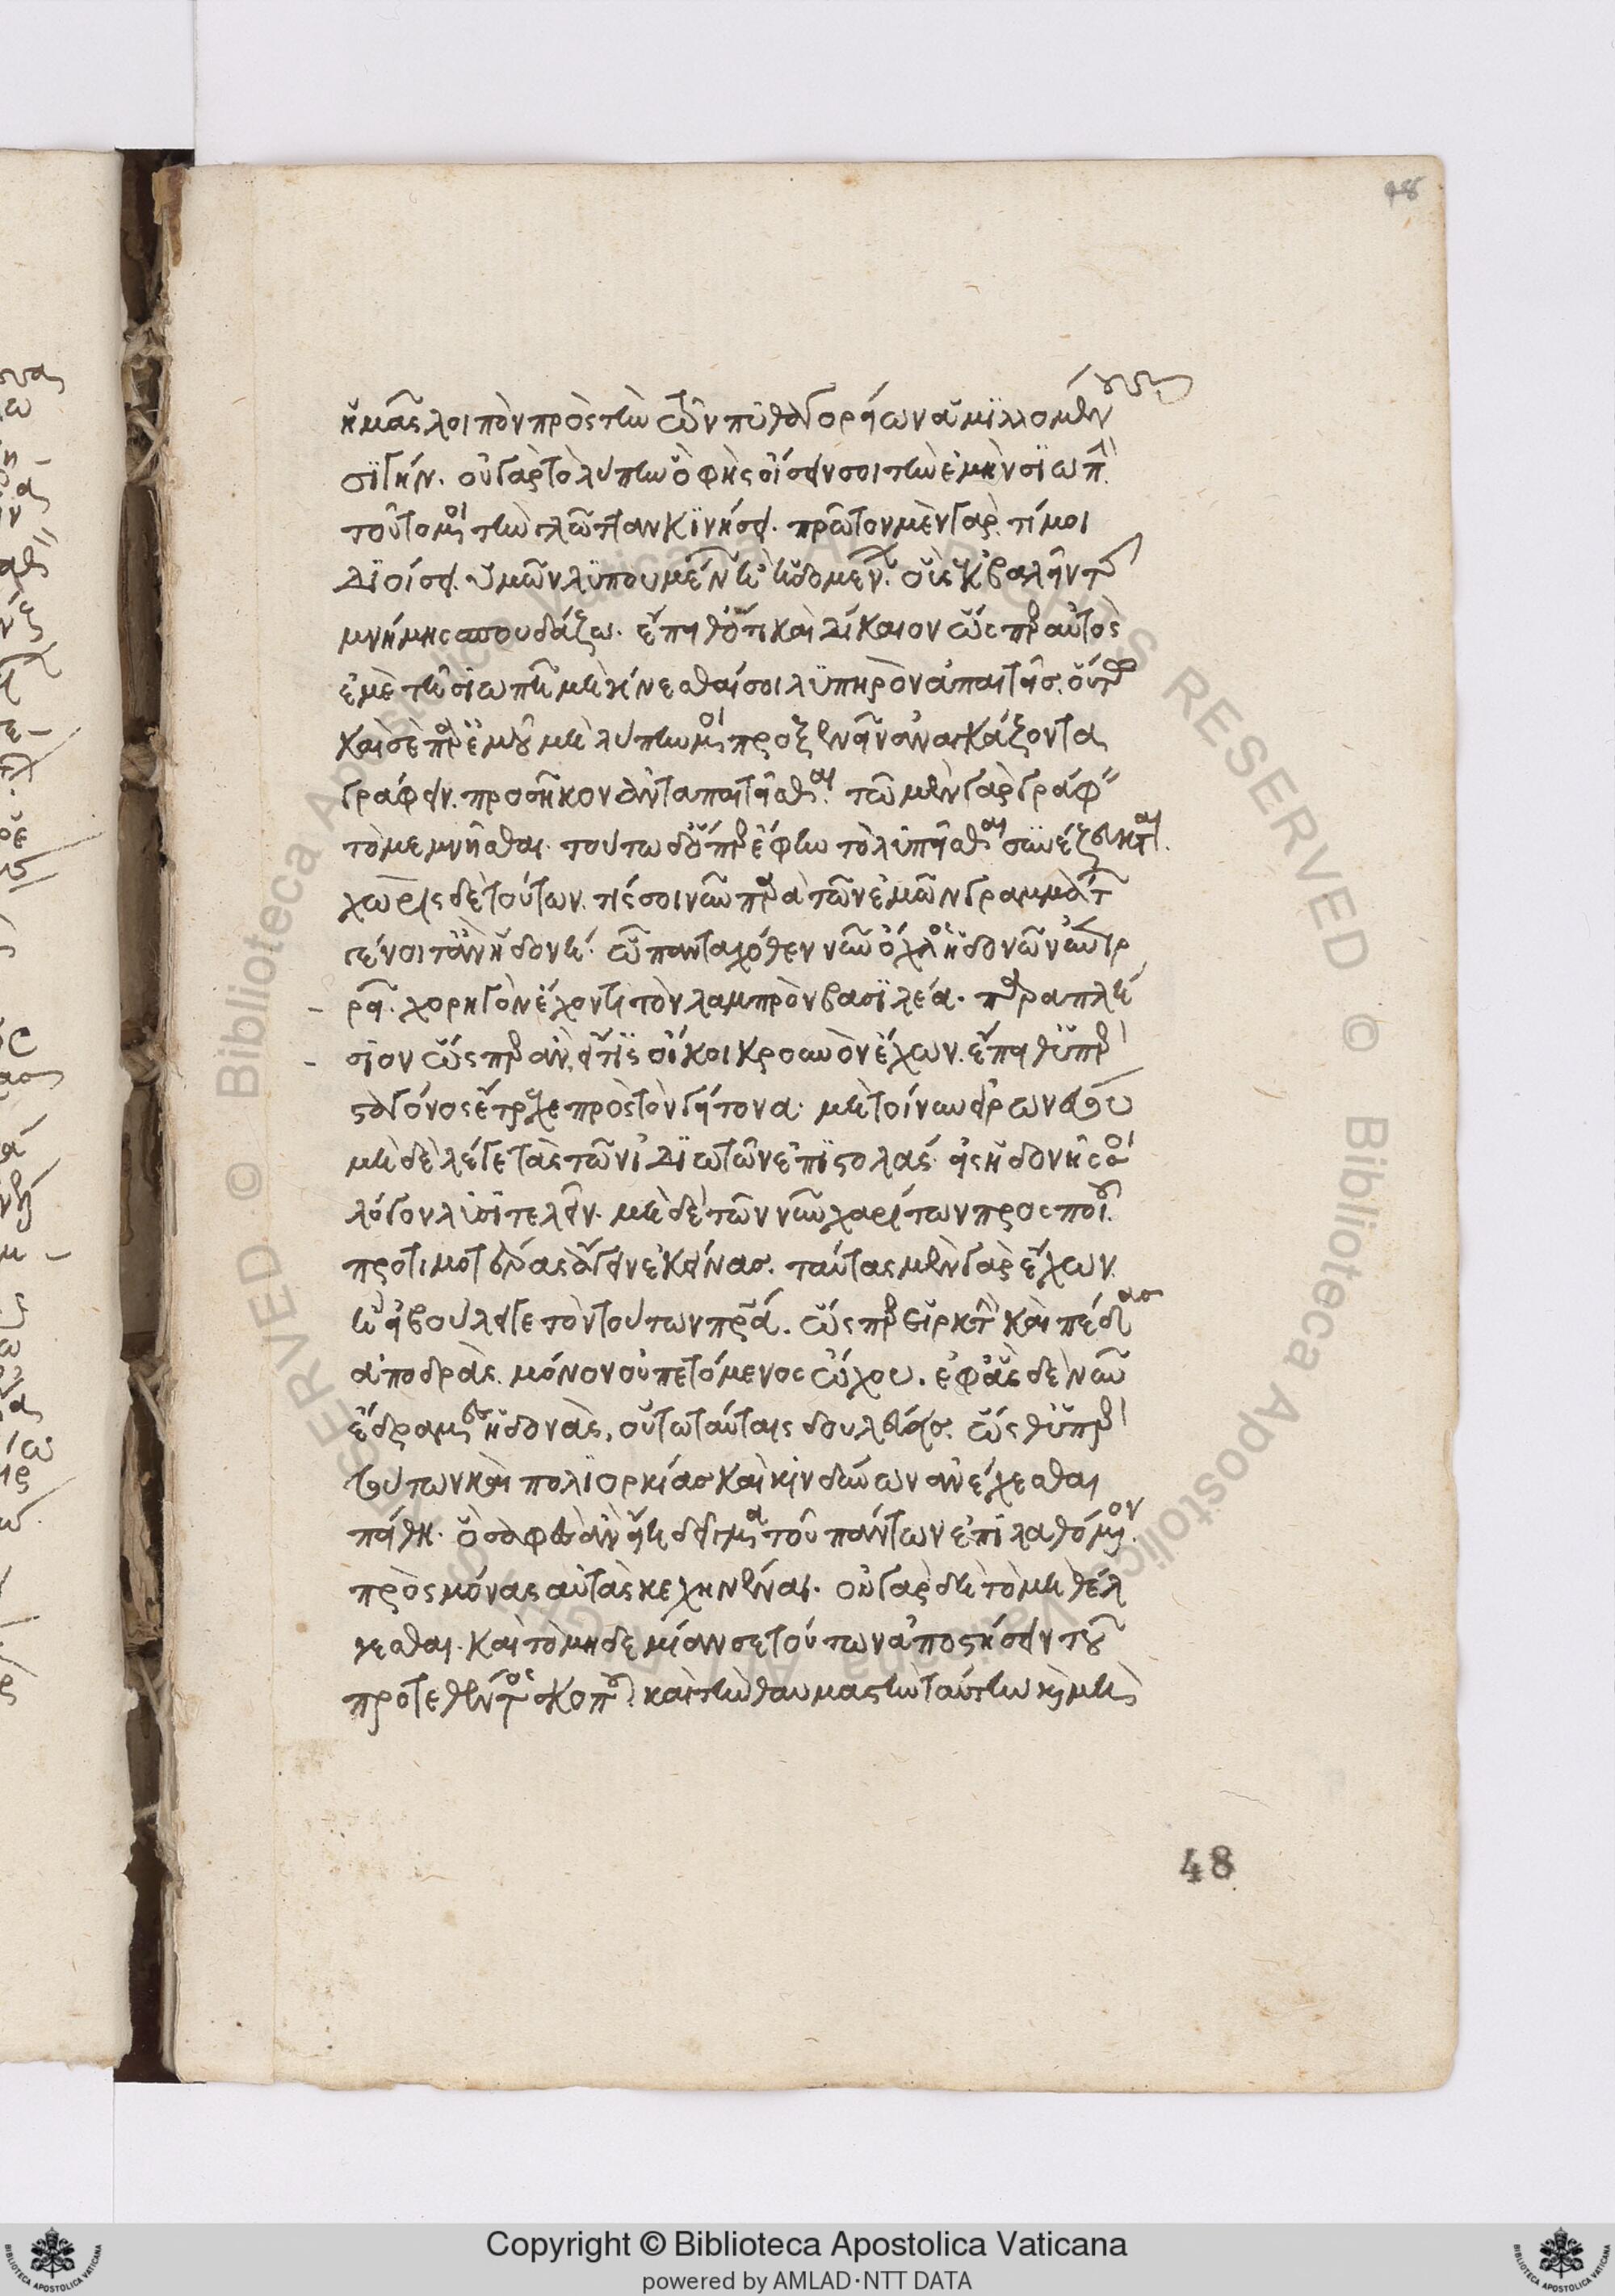 48
ἡμᾶς λοιπὸν πρὸς τὴν τῶν πυθαγορείων ἁμιλλομένους
σιγήν. οὐ γὰρ τὸ λυπεῖν ὃ φὴς οἴσειν σοι τὴν ἐμὴν σιωπὴν
τοῦτό μοι τὴν γλῶτταν κινήσει. πρῶτον μὲν γὰρ τί μοι
διοίσει ὑμῶν λυπουμένων ἢ ἡδομένων. οὓς ἐκβαλεῖν τῆς
μνήμης σπουδάζω. ἔπειθ' ὅτι καὶ δίκαιον ὥσπερ αὐτὸς
ἐμὲ τῇ σιωπῇ μὴ γίνεσθαί σοι λυπηρὸν ἀπαιτεῖς, οὕτω
καὶ σὲ παρ' ἐμοῦ μὴ λύπην μοι προξενεῖν ἀναγκάζοντα
γράφειν. προσῆκον ἀνταπαιτεῖσθαι. τῷ μὲν γὰρ γράφειν
τὸ μεμνῆσθαι. τούτῳ δ' ὅπερ ἔφην τὸ λυπεῖσθαι συνέζευκται.
χωρὶς δὲ τούτων. τίς σοι νῦν παρὰ τῶν ἐμῶν γραμμάτων
γένοιτ' ἂν ἡδονή. ᾧ πανταχόθεν νῦν ὄχλος ἡδονῶν
ῥεῖ. χορηγὸν ἔχοντι τὸν λαμπρὸν βασιλέα. παραπλή
σιον ὥσπερ ἂν εἴ τις οἴκοι κρουνὸν ἔχων. ἔπειθ' ὑπὲρ
σταγόνος ἔτρεχε πρὸς τὸν γείτονα. μὴ τοίνυν εἰρωνεύου
μηδὲ λέγε τὰς τῶν ἰδιωτῶν ἐπιστολὰς εἰς ἡδονῆς σοι
λόγον λυσιτελεῖν. μηδὲ τῶν νῦν χαρίτων προσποιοῦ
προτιμοτέρας ἄγειν ἐκείνας. ταύτας μὲν γὰρ ἔχων.
ἢ ἐβούλετε τὸν τούτων πρᾶ. ὥσπερ εἱρκτὴν καὶ πέδας
ἀποδρὰς. μόνον οὐ πετόμενος ᾤχου. ἐφ' ἃς δὲ νῦν
ἔδραμες ἡδονὰς, οὕτω ταύταις δουλεύεις. ὡς θ' ὑπὲρ
τούτων καὶ πολιορκίας καὶ κινδύνων ἀνέχεσθαι
πείθῃ. ὃ σαφὲς ἂν εἴη δεῖγμα τοῦ πάντων ἐπιλαθόμενον
πρὸς μόνας αὐτὰς κεχηνέναι. οὐ γὰρ δὴ τὸ μὴ θέλ
γεσθαι. καὶ τὸ μηδεμίαν σε τούτων ἀποστήσειν τοῦ
προτεθέντος σκοποῦ. καὶ τὴν θαυμαστὴν ταύτην καὶ μὴ
48
Copyright © Biblioteca Apostolica Vaticana
powered by AMLAD·NTT DATA